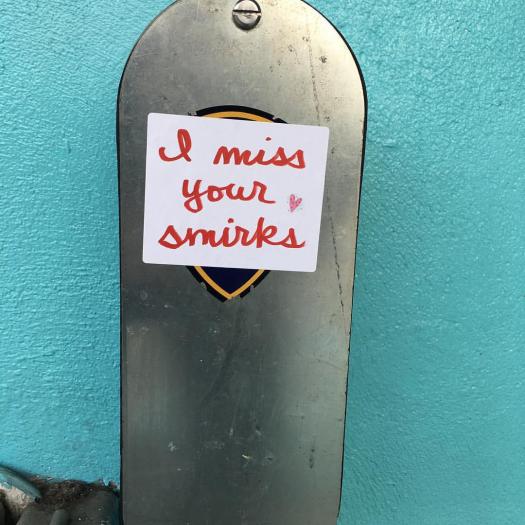 I miss
your
smirks